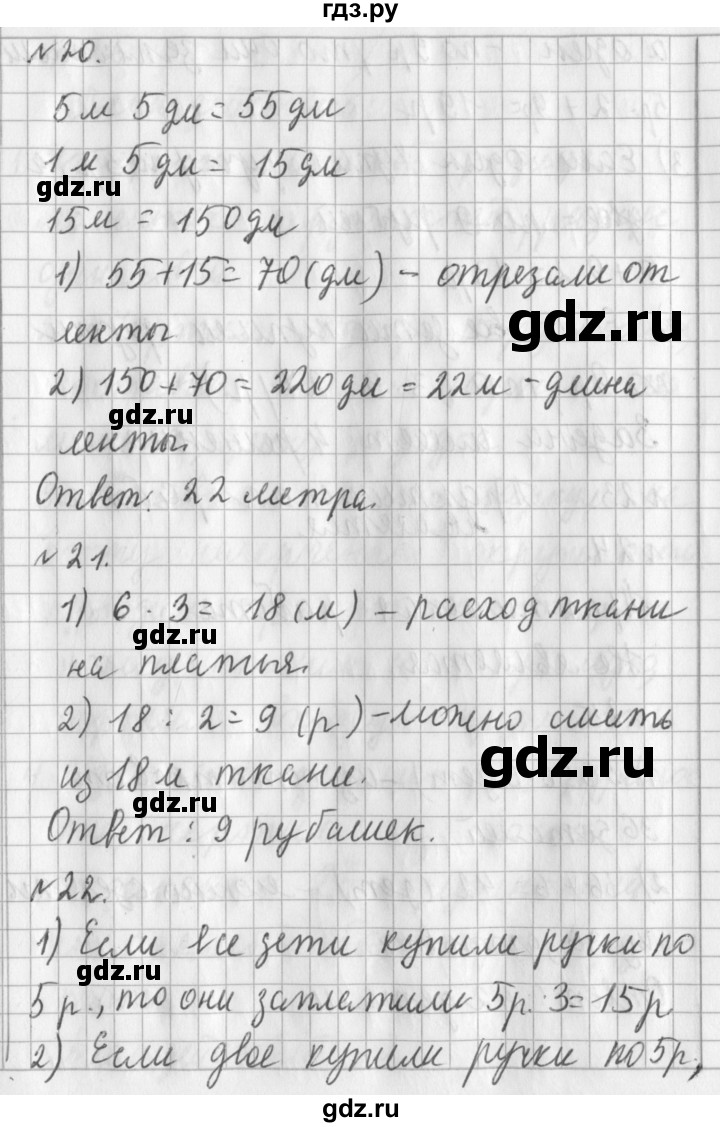 гдз.ру
№20.
5м 5дм = 55дм
1м 5дм = 15дм
gdz.ru
15м = 150дм
1) 55+15= 70(дм) – отрезали от
gdz.ru
ленты
2) 150+70= 220дм = 22м – длина
gdz.ru
ленты.
Ответ: 22 метра.
№21.
1) 6 · 3= 18(м) – расход ткани
gdz.ru
на платья.
2) 18 : 2= 9 (р) – можно сшить
gdz.ru
из 18м ткани.
gdz.ru
Ответ: 9 рубашек.
№22.
1) Если все дети купили ручки по
gdz.ru
5р., то они заплатили 5р. · 3=15р
2) Если двое купили ручки по 5р.,
gdz.ru